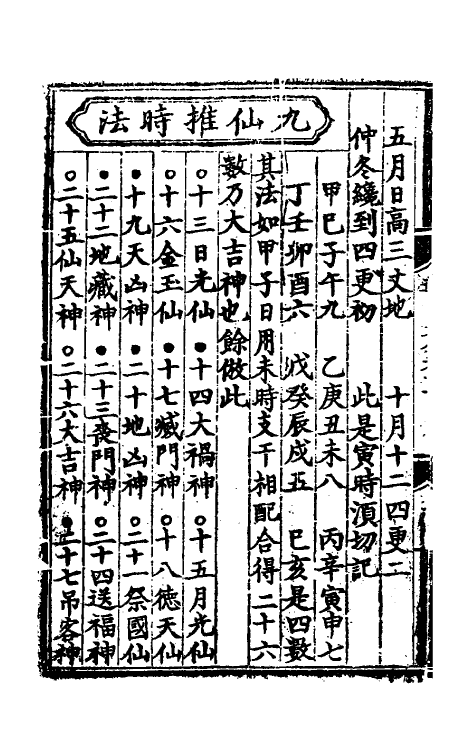 五月日高三丈地 十月十二四更二
仲冬纔到四更初 此是寅時須切記
九仙推時法
甲巳子午九 乙庚丑未八 丙辛寅申七
丁壬卯酉六 戊癸辰戌五 巳亥是四數
其法如甲子日用未時支干相配合得二十六
數乃大吉神也餘倣此
○十三日光仙 ●十四大禍神 ○十五月光仙
○十六金玉仙 ●十七臧門神 ○十八德天仙
●十九天凶神 ●二十地凶神 ○二十一祭國仙
●二十二地藏神 ●二十三喪門神 ○二十四送福神
○二十五仙天神 ○二十六大吉神 ●二十七吊客神